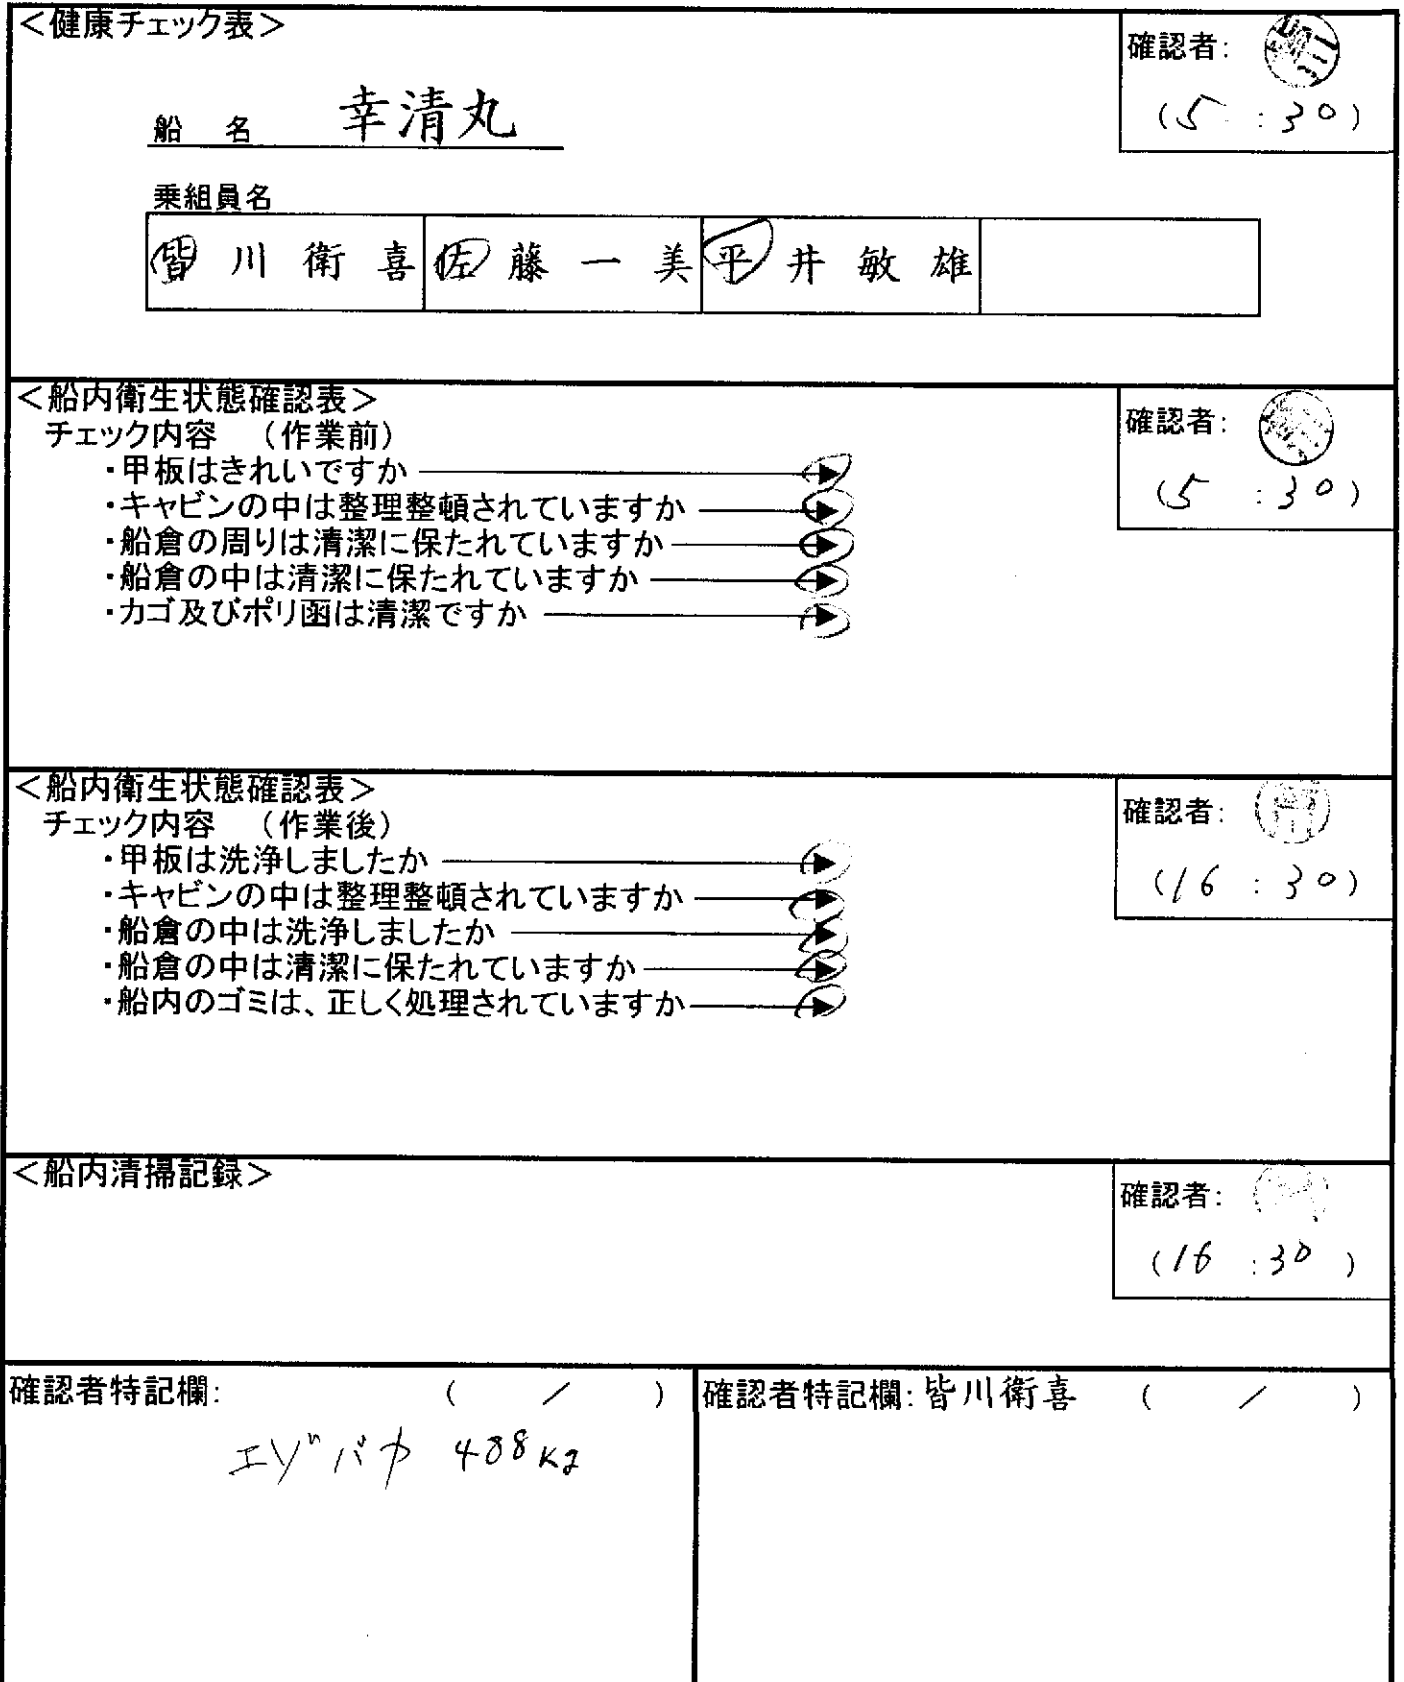 ＜健康チェック表＞
確認者:
(5 : 30)
船 名 幸清丸
乗組員名
皆川衛喜 佐藤一美 平井敏雄
＜船内衛生状態確認表＞
確認者:
(5 : 30)
チェック内容 （作業前）
・甲板はきれいですか
・キャビンの中は整理整頓されていますか
・船倉の周りは清潔に保たれていますか
・船倉の中は清潔に保たれていますか
・カゴ及びポリ函は清潔ですか
＜船内衛生状態確認表＞
確認者:
(16 : 30)
チェック内容 （作業後）
・甲板は洗浄しましたか
・キャビンの中は整理整頓されていますか
・船倉の中は洗浄しましたか
・船倉の中は清潔に保たれていますか
・船内のゴミは、正しく処理されていますか
＜船内清掃記録＞
確認者:
(16 : 30 )
確認者特記欄: ( ／ )
エゾバカ 488Kg
確認者特記欄:皆川衛喜 ( ／ )